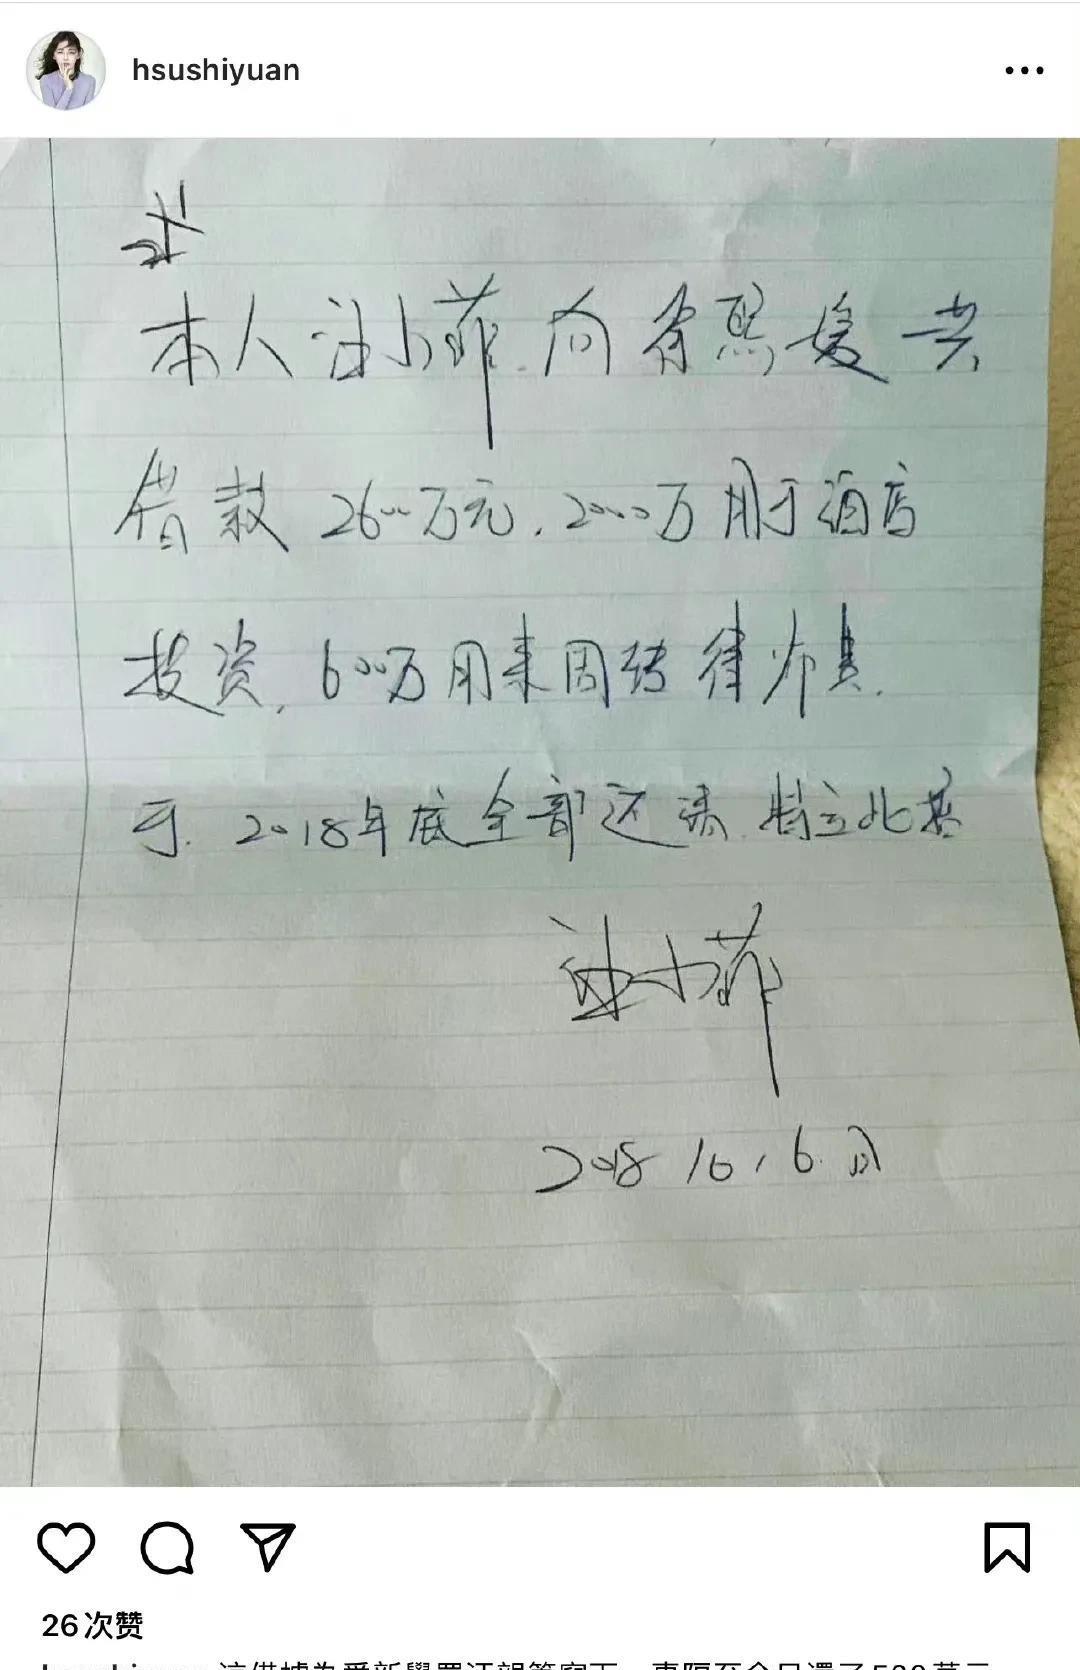 hsushiyuan
本人汪小菲.向徐熙媛共
借款2600万元.2000万用于酒店
投资.600万用来周转律师费.
于.2018年底全部还清.特立此据
汪小菲
2018 10.6.日
26次赞